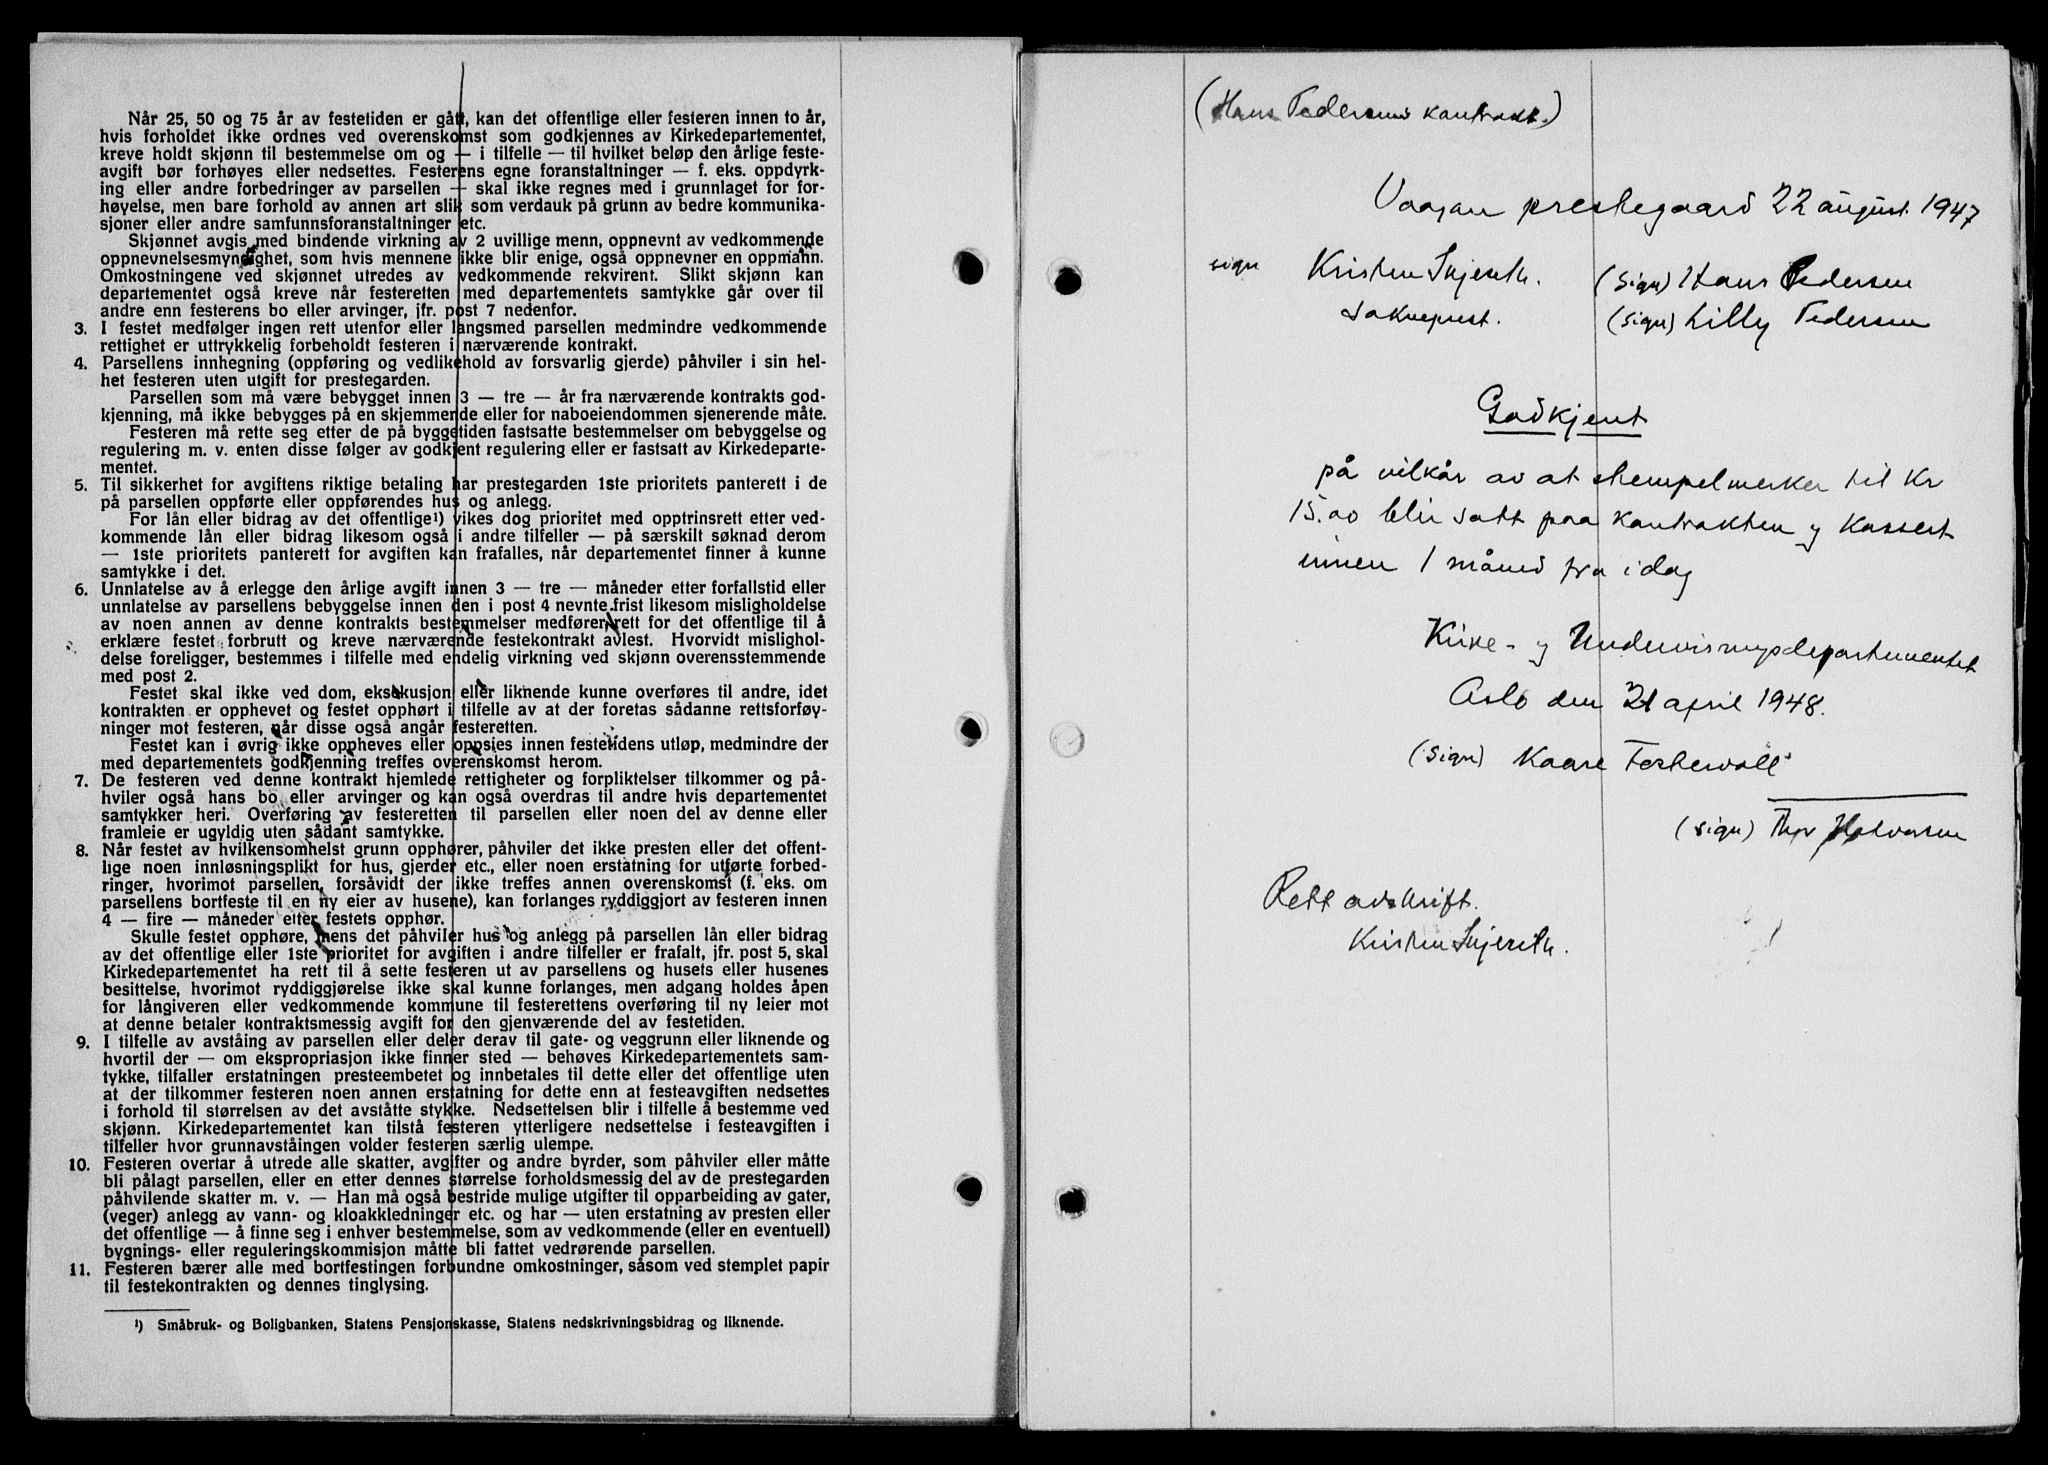 Når 25, 50 og 75 år av festetiden er gått, kan det offentlige eller festeren innen to år,
hvis forholdet ikke ordnes ved overenskomst som godkjennes av Kirkedepartementet,
kreve holdt skjønn til bestemmelse om og — i tilfelle — til hvilket beløp den årlige feste-
avgift bør forhøyes eller nedsettes. Festerens egne foranstaltninger — f. eks. oppdyrk-
ing eller andre forbedringer av parsellen — skal ikke regnes med i grunnlaget for for-
høyelse, men bare forhold av annen art slik som verdauk på grunn av bedre kommunika-
sjoner eller andre samfunnsforanstaltninger etc.
Skjønnet avgis med bindende virkning av 2 uvillige menn, oppnevnt av vedkommende
oppnevnelsesmyndighet, som hvis mennene ikke blir enige, også oppnevner en oppmann.
Omkostningene ved skjønnet utredes av vedkommende rekvirent. Slikt skjønn kan
departementet også kreve når festeretten med departementets samtykke går over til
andre enn festerens bo eller arvinger, jfr. post 7 nedenfor.
3. I festet medfølger ingen rett utenfor eller langsmed parsellen medmindre vedkommende
rettighet er uttrykkelig forbeholdt festeren i nærværende kontrakt.
4. Parsellens innhegning (oppføring og vedlikehold av forsvarlig gjerde) påhviler i sin hel-
het festeren uten utgift for prestegarden.
Parsellen som må være bebygget innen 3 — tre — år fra nærværende kontrakts god-
kjenning, må ikke bebygges på en skjemmende eller for naboeiendommen sjenerende måte.
Festeren må rette seg etter de på byggetiden fastsatte bestemmelser om bebyggelse og
regulering m. v. enten disse følger av godkjent regulering eller er fastsatt av Kirkedeparte-
mentet.
5. Til sikkerhet for avgiftens riktige betaling har prestegarden 1ste prioritets panterett i de
på parsellen oppførte eller oppførendes hus og anlegg.
For lån eller bidrag av det offentlige¹) vikes dog prioritet med opptrinsrett etter ved-
kommende lån eller bidrag likesom også i andre tilfeller — på særskilt søknad derom
— 1ste prioritets panterett for avgiften kan frafalles, når departementet finner å kunne
samtykke i det.
6. Unnlatelse av å erlegge den årlige avgift innen 3 — tre — måneder etter forfallstid eller
unnlatelse av parsellens bebyggelse innen den i post 4 nevnte frist likesom misligholdelse
av noen annen av denne kontrakts bestemmelser medfører rett for det offentlige til å
erklære festet forbrutt og kreve nærværende festekontrakt avlest. Hvorvidt misligho-
delse foreligger, bestemmes i tilfelle med endelig virkning ved skjønn overensstemmende
med post 2.
Festet skal ikke ved dom, eksekusjon eller liknende kunne overføres til andre, idet
kontrakten er opphevet og festet opphørt i tilfelle av at der foretas sådanne rettsforføy-
ninger mot festeren, når disse også angår festeretten.
Festet kan i øvrig ikke oppheves eller oppsies innen festetidens utløp, medmindre der
med departementets godkjenning treffes overenskomst herom.
7. De festeren ved denne kontrakt hjemlede rettigheter og forpliktelser tilkommer og på-
hviler også hans bo eller arvinger og kan også overdras til andre hvis departementet
samtykker heri. Overføring av festeretten til parsellen eller noen del av denne eller
framleie er ugyldig uten sådant samtykke.
8. Når festet av hvilkensomhelst grunn opphører, påhviler det ikke presten eller det offent-
lige noen innløsningsplikt for hus, gjerder etc., eller noen erstatning for utførte forbed-
ringer, hvorimot parsellen, forsåvidt der ikke treffes annen overenskomst (f. eks. om
parsellens bortfeste til en ny eier av husene), kan forlanges ryddiggjort av festeren innen
4 — fire — måneder etter festets opphør.
Skulle festet opphøre, mens det påhviler hus og anlegg på parsellen lån eller bidrag
av det offentlige eller 1ste prioritet for avgiften i andre tilfeller er frafalt, jfr. post 5, skal
Kirkedepartementet ha rett til å sette festeren ut av parsellens og husets eller husenes
besittelse, hvorimot ryddiggjørelse ikke skal kunne forlanges, men adgang holdes åpen
for långiveren eller vedkommende kommune til festerettens overføring til ny leier mot
at denne betaler kontraktsmessig avgift for den gjenværende del av festetiden.
9. I tilfelle av avståing av parsellen eller deler derav til gate- og veggrunn eller liknende og
hvortil der — om ekspropriasjon ikke finner sted — behøves Kirkedepartementets sam-
tykke, tilfaller erstatningen presteembetet og innbetales til dette eller det offentlige uten
at der tilkommer festeren noen annen erstatning for dette enn at festeavgiften nedsettes
i forhold til størrelsen av det avståtte stykke. Nedsettelsen blir i tilfelle å bestemme ved
skjønn. Kirkedepartementet kan tilstå festeren ytterligere nedsettelse i festeavgiften i
tilfeller hvor grunnavståingen volder festeren særlig ulempe.
10. Festeren overtar å utrede alle skatter, avgifter og andre byrder, som påhviler eller måtte
bli pålagt parsellen, eller en etter dennes størrelse forholdsmessig del av de prestegarden
påhvilende skatter m. v. — Han må også bestride mulige utgifter til opparbeiding av gater,
(veger) anlegg av vann- og kloakkledninger etc. og har — uten erstatning av presten eller
det offentlige — å finne seg i enhver bestemmelse, som av vedkommende (eller en eventuell)
bygnings- eller reguleringskommisjon måtte bli fattet vedrørende parsellen.
11. Festeren bærer alle med bortfestingen forbundne omkostninger, såsom ved stemplet papir
til festekontrakten og dennes tinglysing.
¹) Småbruk- og Boligbanken, Statens Pensjonskasse, Statens nedskrivningsbidrag og liknende.
(Hans Pedersens kontrakt.)
Vaagan prestegaard 22 august 1947
sign Kristen Skjeseth. (sign) Hans Pedersen
sokneprest. (sign) Lilly Pedersen
Godkjent
på vilkår av at stempelmerker til Kr
15.00 blir satt paa kontrakten og kassert
innen 1 måned fra idag
Kirke- og Undervisningsdepartementet
Oslo den 21 april 1948.
(sign) Kaare Fostervoll
(sign) Thor Halvorsen
Rett avskrift.
Kristen Skjeseth.